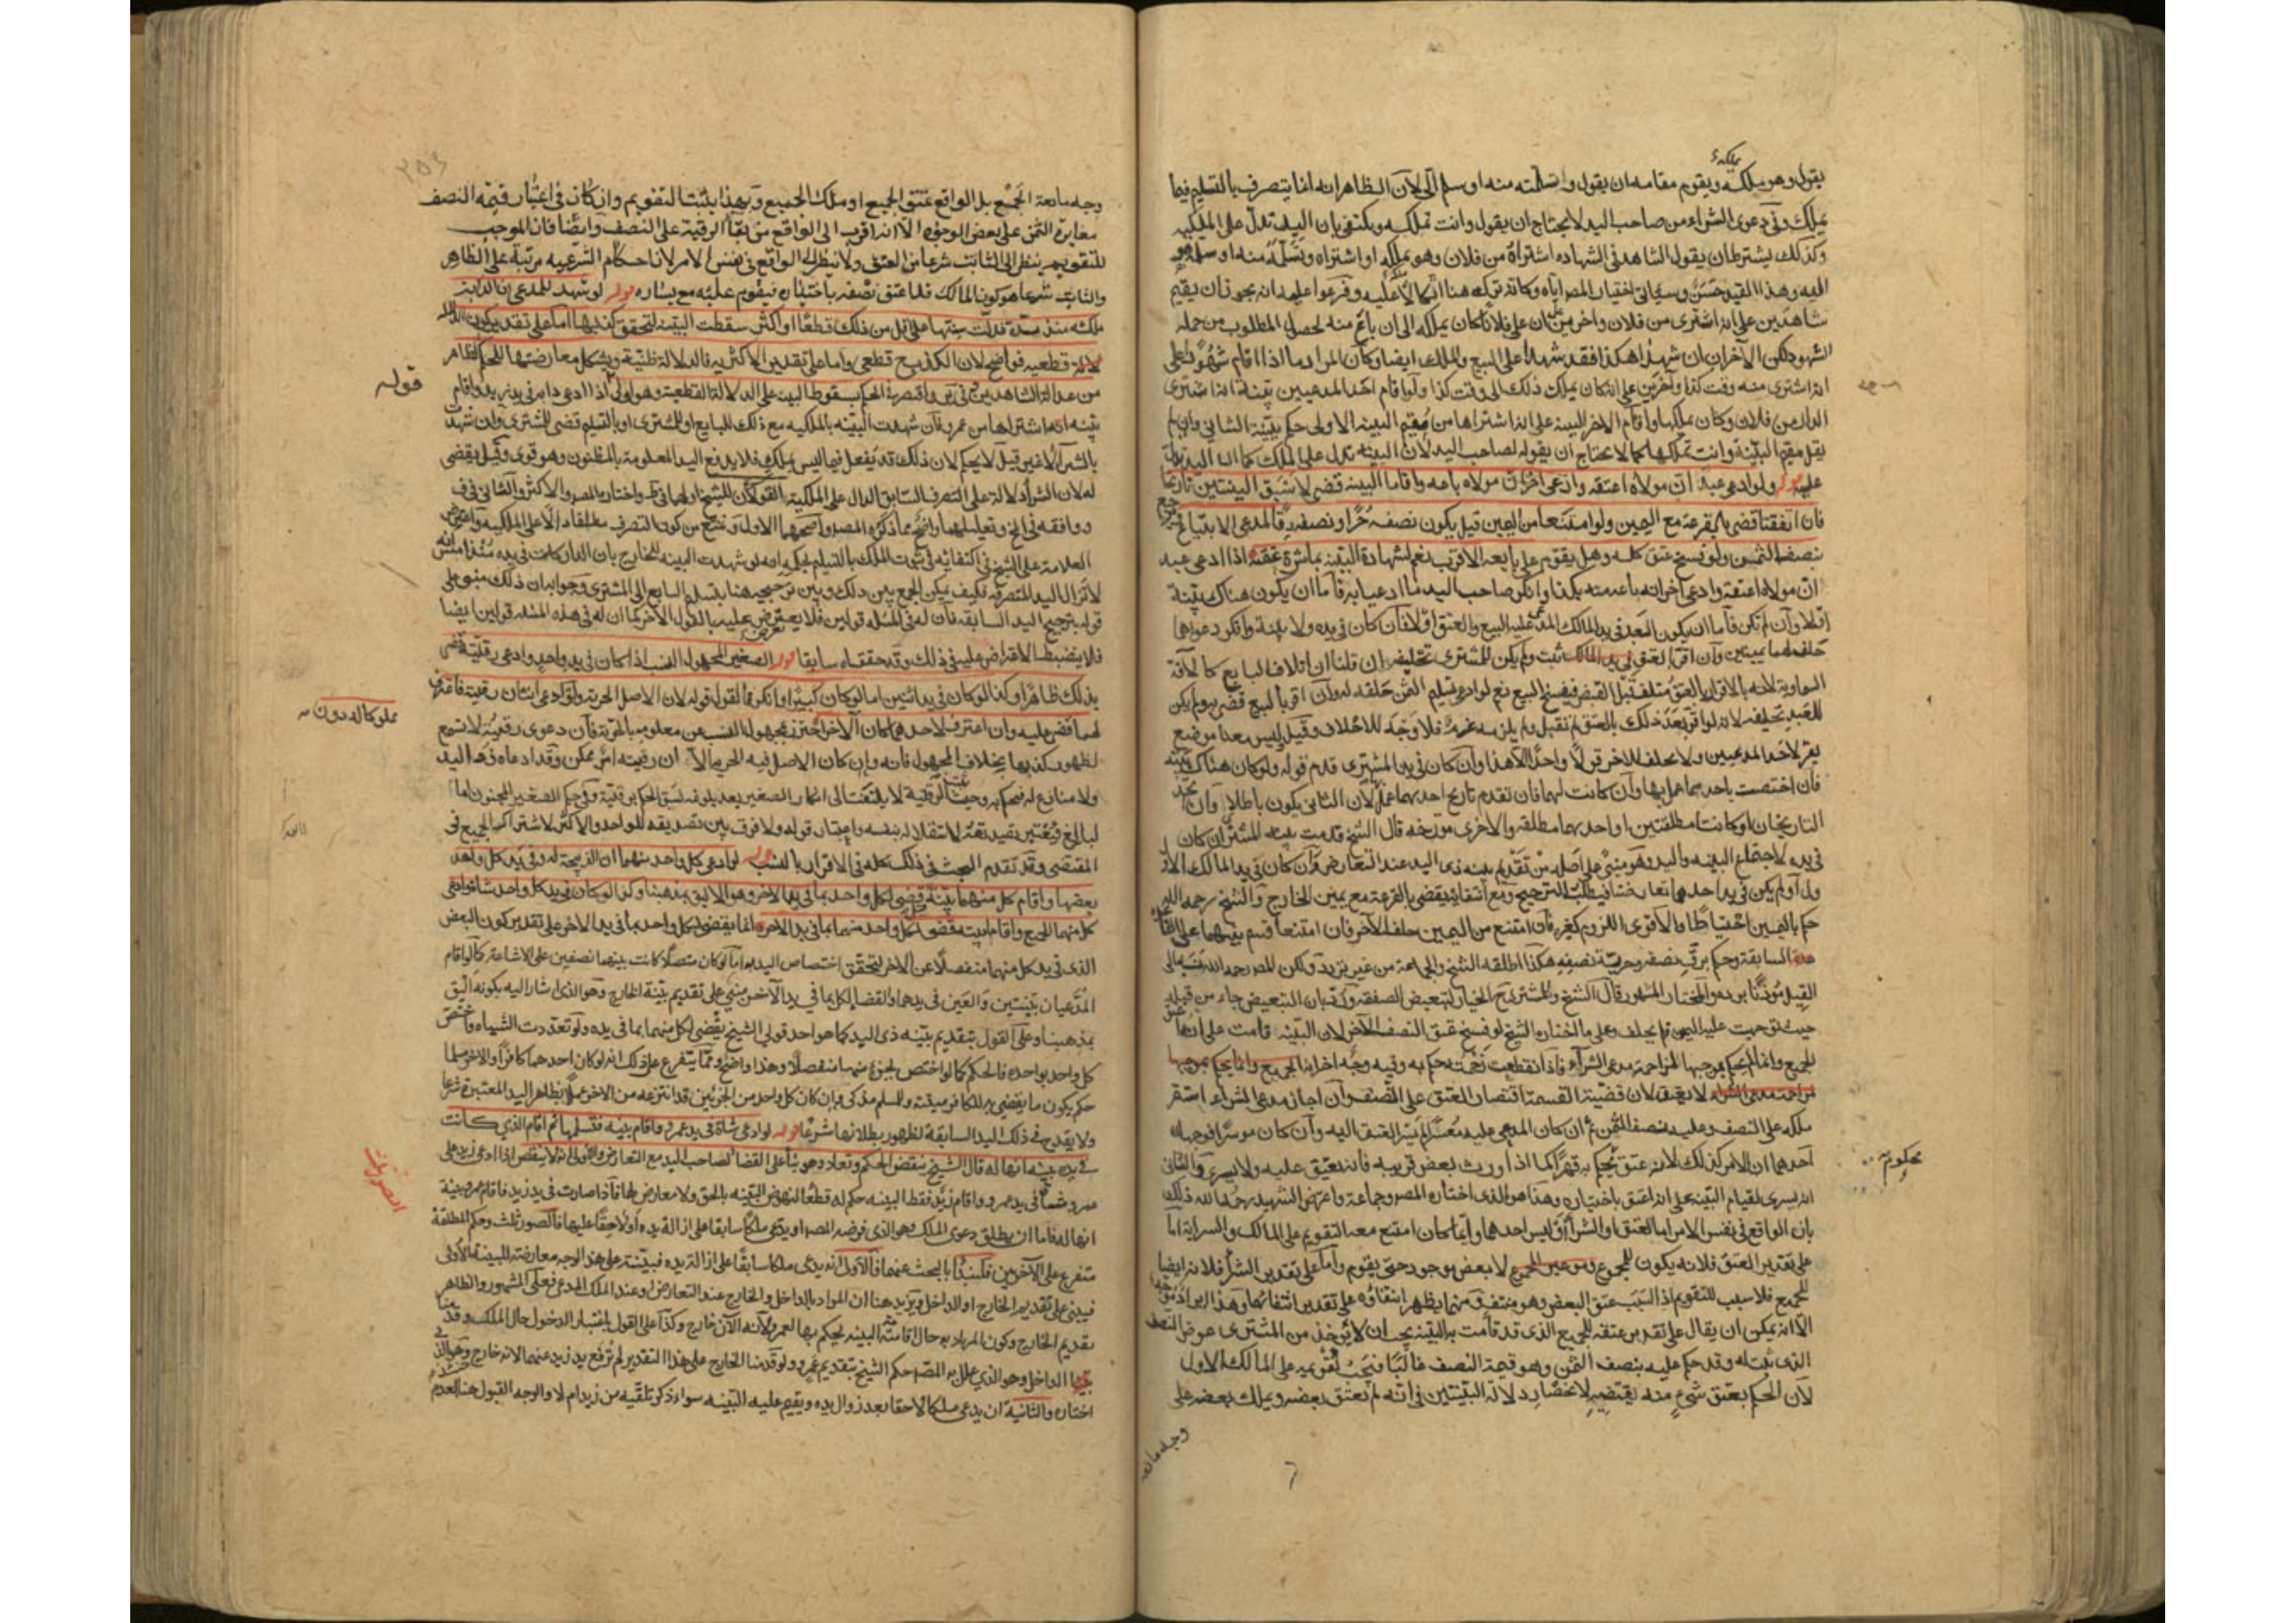 يملكه
يقول وهو ملكه ويقوم مقامه ان يقول وتسلمته منه او سلم الى لان الظاهر انه انما يتصرف بالتسليم فيما
يملك وفي دعوى الشراء من صاحب اليد لا يحتاج ان يقول وانت تملكه ويكتفى بان اليد تدل على الملكيه
وكذلك يشترط ان يقول الشاهد في الشهاده اشتراه من فلان وهو يملكه او اشتراه وتسلمه منه او سلمه هو
اليه وهذا القيد حسن وسياتى اختيار المصر اياه وكانه تركه هنا اتكالا عليه وفرعوا عليه انه يجوز ان يقيم
شاهدين على انه اشترى من فلان واخرين على ان فلانا كان يملكه الى ان باع منه لحصول المطلوب من جمله
الشهود لكن الآخران ان شهدا هكذا فقد شهدا على البيع والملك ايضا وكان المراد ما اذا اقام شهودا على
انه اشترى منه وقت كذا وآخرين على انه كان يملك ذلك الى وقت كذا ولو اقام احد المدعيين بينة انه اشترى
الدار من فلان وكان يملكها واقام الاخر البينه على انه اشتراها من مقيم البينه الاولى حكم ببينة الثانى وان لم
يقل مقيم البينة وانت تملكها كما لا يحتاج ان يقوله لصاحب اليد لان البينه تدل على الملك كما ان اليد تدل
عليه قوله ولو ادعى عبد ان مولاه اعتقه وادعى اخر ان مولاه باعه واقاما البينه قضى لاسبق البينتين تاريخا
فان اتفقتا قضى بالقرعة مع اليمين ولو امتنعا من اليمين قيل يكون نصفه حرا ونصفه رقا لمدعى الابتياع ويرجع
بنصف الثمن ولو فسخ عتق كله وهل يقوم على بايعه الاقرب نعم لشهادة البينه بمباشرة عتقه اذا ادعى عبد
ان مولاه اعتقه وادعى اخر انه باعه منه بكذا وانكر صاحب اليد ما ادعيا به فاما ان يكون هناك بينة
او لا وان لم تكن فاما ان يكون العبد في يد المالك المدعى عليه البيع والعتق او لا فان كان في يده ولا بينة وانكر دعواهما
حلف لهما يمينين وان اقر بالعتق ثبت ولم يكن للمشترى تحليفه ان قلنا ان اتلاف البايع كالآفة
السماوية لانه بالاقرار بالعتق متلف قبل القبض فينفسخ البيع نعم لو ادعى تسليم الثمن حلفه له وان اقر بالبيع قضى به ولم يكن
للعبد تحليفه لانه لو اقر بعد ذلك بالعتق لم تقبل ولم يلزمه غرم فلا وجه للاحلاف وقيل ليس معنا موضع
يقر لاحد المدعيين ولا يحلف للاخر قولا واحدا الا هذا وان كان في يد المشترى قدم قوله ولو كان هناك بينة
فان اختصت باحدهما عمل بها وان كانت لهما فان تقدم تاريخ احدهما عمل لان الثانى يكون باطلا وان اتحد
التاريخان او كانتا مطلقتين او احدهما مطلقه والاخرى مورخه قال الشيخ قدمت بينه المشترى ان كان
في يده لاجتماع البينه واليد وهو مبنى على اصله من تقديم بينه ذى اليد عند التعارض وان كان في يد المالك الاول
او لم يكن في يد احدهما تعارضتا فيطلب الترجيح ومع انتفائه يقضى بالقرعة مع يمين الخارج والشيخ رحمه الله
حكم باليمين احتياطا والاقوى اللزوم كغيره فان امتنع من اليمين حلف الآخر فان امتنعا قسم بينهما على القاعدة
السابقة وحكم برق نصفه وحرية نصفه هكذا اطلقه الشيخ والجماعة من غير تردد ولكن المصر رحمه الله نسبه الى
القيل مؤذنا برده والمختار المشهور قال الشيخ وللمشترى ح الخيار لتبعيض الصفقه
حيث توجهت عليه اليمين فلم يحلف وعلى ما اختاره الشيخ لو فسخ عتق النصف الآخر لان البينه قامت على انه اعتق
الجميع وانما لم يحكم بموجبها لمزاحمة مدعى الشراء فاذا انقطعت زحمته حكم به وفيه وجه اخر
لا يعتق لان قضية القسمة اقتصار العتق على النصف وان اجاز مدعى الشراء استقر
ملكه على النصف وعليه نصف الثمن ثم ان كان المدعى عليه معسرا لم يسر العتق اليه وان كان موسرا فوجهان
احدهما ان الامر كذلك لانه عتق محكوم به قهرا كما اذا ورث بعض قريبه فانه يعتق عليه ولا يسرى والثانى
انه يسرى لقيام البينه على انه اعتق باختياره وهذا هو الذى اختاره المصر وجماعة واعترض الشهيد رحمه الله ذلك
بان الواقع في نفس الامر اما العتق او الشراء وليس احدهما وايا ما كان امتنع معه التقويم على المالك والسراية اما
على تقدير العتق فلانه يكون للمجموع لا بعض موجود حتى يقوم واما على تقدير الشراء فلانه ايضا
للجميع فلا سبب للتقويم اذ السبب عتق البعض وهو منتف
الا انه يمكن ان يقال على تقدير عتقه للجميع الذى قد قامت به البينه يجب ان لا يؤخذ من المشترى عوض النصف
الذى ثبت له وقد حكم عليه بنصف الثمن وهو قيمة النصف غالبا فيجب تقويمه على المالك الاول
لان الحكم بعتق شىء منه يقتضيه لانحصار دلالة البينتين في انه لم يعتق بعضه ويملك بعضه على
وجه مانعه
محكوم به
وجه مانعة الجمع بل الواقع عتق الجميع او ملك الجميع وبهذا يثبت التقويم وان كان في اعتبار قيمة النصف
مغايرة الثمن على بعض الوجوه الا انه اقرب الى الواقع من بقاء الرقية على النصف وايضا فان الموجب
للتقويم ينظر الى الثابت شرعا من العتق ولا ينظر الى الواقع في نفس الامر لان احكام الشرعيه مرتبة على الظاهر
والثابت شرعا هو كون المالك قد اعتق نصفه باختياره فيقوم عليه مع يساره قوله لو شهد للمدعى ان الدابة
ملكه منذ مدة فدلت سنها على اقل من ذلك قطعا او اكثر سقطت البينة لتحقق كذبها اما على تقدير كون الدلالة
قطعيه فواضح لان الكذب ح قطعى واما على تقدير الاكثرية فالدلالة ظنية ويشكل معارضتها للحكم الظاهر
من عدالة الشاهدين واقتصر في الحكم بسقوط البينه على الدلالة القطعية وهو اولى اذا ادعى دابة في يد زيد واقام
قوله
بينه انه اشتراها من عمرو فان شهدت البينه بالملكيه مع ذلك للبايع او للمشترى او بالتسليم قضى للمشترى وان شهدت
بالشراء لا غير قيل لا يحكم لان ذلك قد يفعل فيما ليس بملك فلا يدفع اليد المعلومة بالمظنون وهو قوى وقيل يقضى
له لان الشراء دلالة على التصرف السابق الدال على الملكية القولان للشيخ
العلامة على الشيخ في اكتفائه في ثبوت الملك بالتسليم بحكمه انه لو شهدت البينه للخارج بان الدار كانت في يده منذ امس
لا تزال اليد المتصرفه فكيف يمكن الجمع بين ذلك وبين ترجيحه هنا بتسليم البايع الى المشترى وجوابه ان ذلك مبنى على
قوله بترجيح اليد السابقه فان له في المسئله قولين فلا يعترض عليه بالقول الآخر كما ان له في هذه المسئله قولين ايضا
فلا ينضبط الاعتراض عليه في ذلك وقد حققناه سابقا قوله الصغير المجهول النسب اذا كان في يد واحد وادعى رقيته قضى
بذلك ظاهرا وكذا لو كان في يد اثنين اما لو كان كبيرا وانكر فالقول قوله لان الاصل الحرية ولو ادعى اثنان رقيته فاعترف
مملوكا له دون
لهما قضى عليه وان اعترف لاحدهما كان الآخر احترز بمجهول النسب عن معلومه بالحرية فان دعوى رقيته لا تسمع
لظهور كذبها بخلاف المجهول فانه وان كان الاصل فيه الحرية الا ان رقيته امر ممكن وقد ادعاه ذو اليد
ولا منازع له فيحكم به وحيث ثبتت الرقية لا يلتفت الى انكار الصغير بعد بلوغه لسبق الحكم برقيته وفي حكم الصغير المجنون اما
البالغ فيعتبر تصديقه لاستقلاله بنفسه واعتبار قوله ولا فرق بين تصديقه للواحد والاكثر لاشتراك الجميع في
المقتضى وقد تقدم البحث في ذلك كله في الاقرار بالنسب قوله لو ادعى كل واحد منهما ان الذبيحة له وفي يد كل واحد
بعضها واقام كل منهما بينة قضى لكل واحد بما في يد الآخر وهو الاليق بمذهبنا وكذا لو كان في يد كل واحد شاة وادعى
كل منهما الجميع واقاما بينه قضى لكل واحد منهما بما في يد الاخر انما يقضى لكل واحد بما في يد الاخر على تقدير كون البعض
الذى في يد كل منهما منفصلا عن الاخر لتحقق اختصاص اليد به اما لو كان متصلا كانت بينهما نصفين على الاشاعة كما لو اقام
المدعيان بينتين والعين في يدهما والقضاء لكل بما في يد الآخر مبنى على تقديم بينة الخارج وهو الذى اشار اليه بكونه اليق
بمذهبنا وعلى القول بتقديم بينه ذى اليد كما هو احد قولي الشيخ يقضى لكل منهما بما في يده ولو تعددت الشياه واختص
كل واحد بواحده فالحكم كما لو اختص بجزء منهما منفصلا وهذا واضح ومما يتفرع على ذلك انه لو كان احدهما كافرا والاخر مسلما
حكم بكون ما يقضى به للكافر ميتة وللمسلم مذكى وان كان كل واحد من الجزئين قد انتزعه من الاخر عملا بظاهر اليد المعتبرة شرعا
ولا يقدح في ذلك اليد السابقة لظهور بطلانها شرعا قوله لو ادعى شاة في يد عمرو واقام بينه فتسلمها ثم اقام الذي كانت
في يده بينه انها له قال الشيخ ينقض الحكم وتعاد وهو بناء على القضاء لصاحب اليد مع التعارض والاولى انه لا ينقض اذا ادعى زيد على
عمرو شيئا في يد عمرو واقام زيد فقط البينه حكم له قطعا لنهوض البينه بالحق ولا معارض لها فاذا صارت في يد زيد فاقام عمرو بينة
انها له فاما ان يطلق دعوى الملك وهو الذى فرضه المصر او يدعى ملكا سابقا على ازالة يده او لاحقا عليها فالصور ثلث وحكم المطلقة
متفرع على الآخرين فلنبدأ بالبحث عنهما فالاولى انه يدعى ملكا سابقا على ازالة يده فبينته على هذا الوجه معارضة للبينة الاولى
فيبنى على تقديم الخارج او الداخل ويزيد هنا ان المراد بالداخل والخارج عند التعارض او عند الملك المدعى فعلى المشهور والظاهر
بتقديم الخارج وكون المراد به حال اقامة البينه يحكم بها لعمرو لانه الآن خارج وكذا على القول باعتبار الدخول حال الملك وقدمنا
بينة الداخل وهو الذي علل به المصر حكم الشيخ بتقديم عمرو ولو قدمنا الخارج على هذا التقدير لم ترفع يد زيد عنهما لانه خارج وهو الذى
اختاره والثانية ان يدعى ملكا لاحقا بعد زوال يده ويقيم عليه البينه سواء ذكر تلقيه من زيد ام لا والوجه القبول هنا لعدم